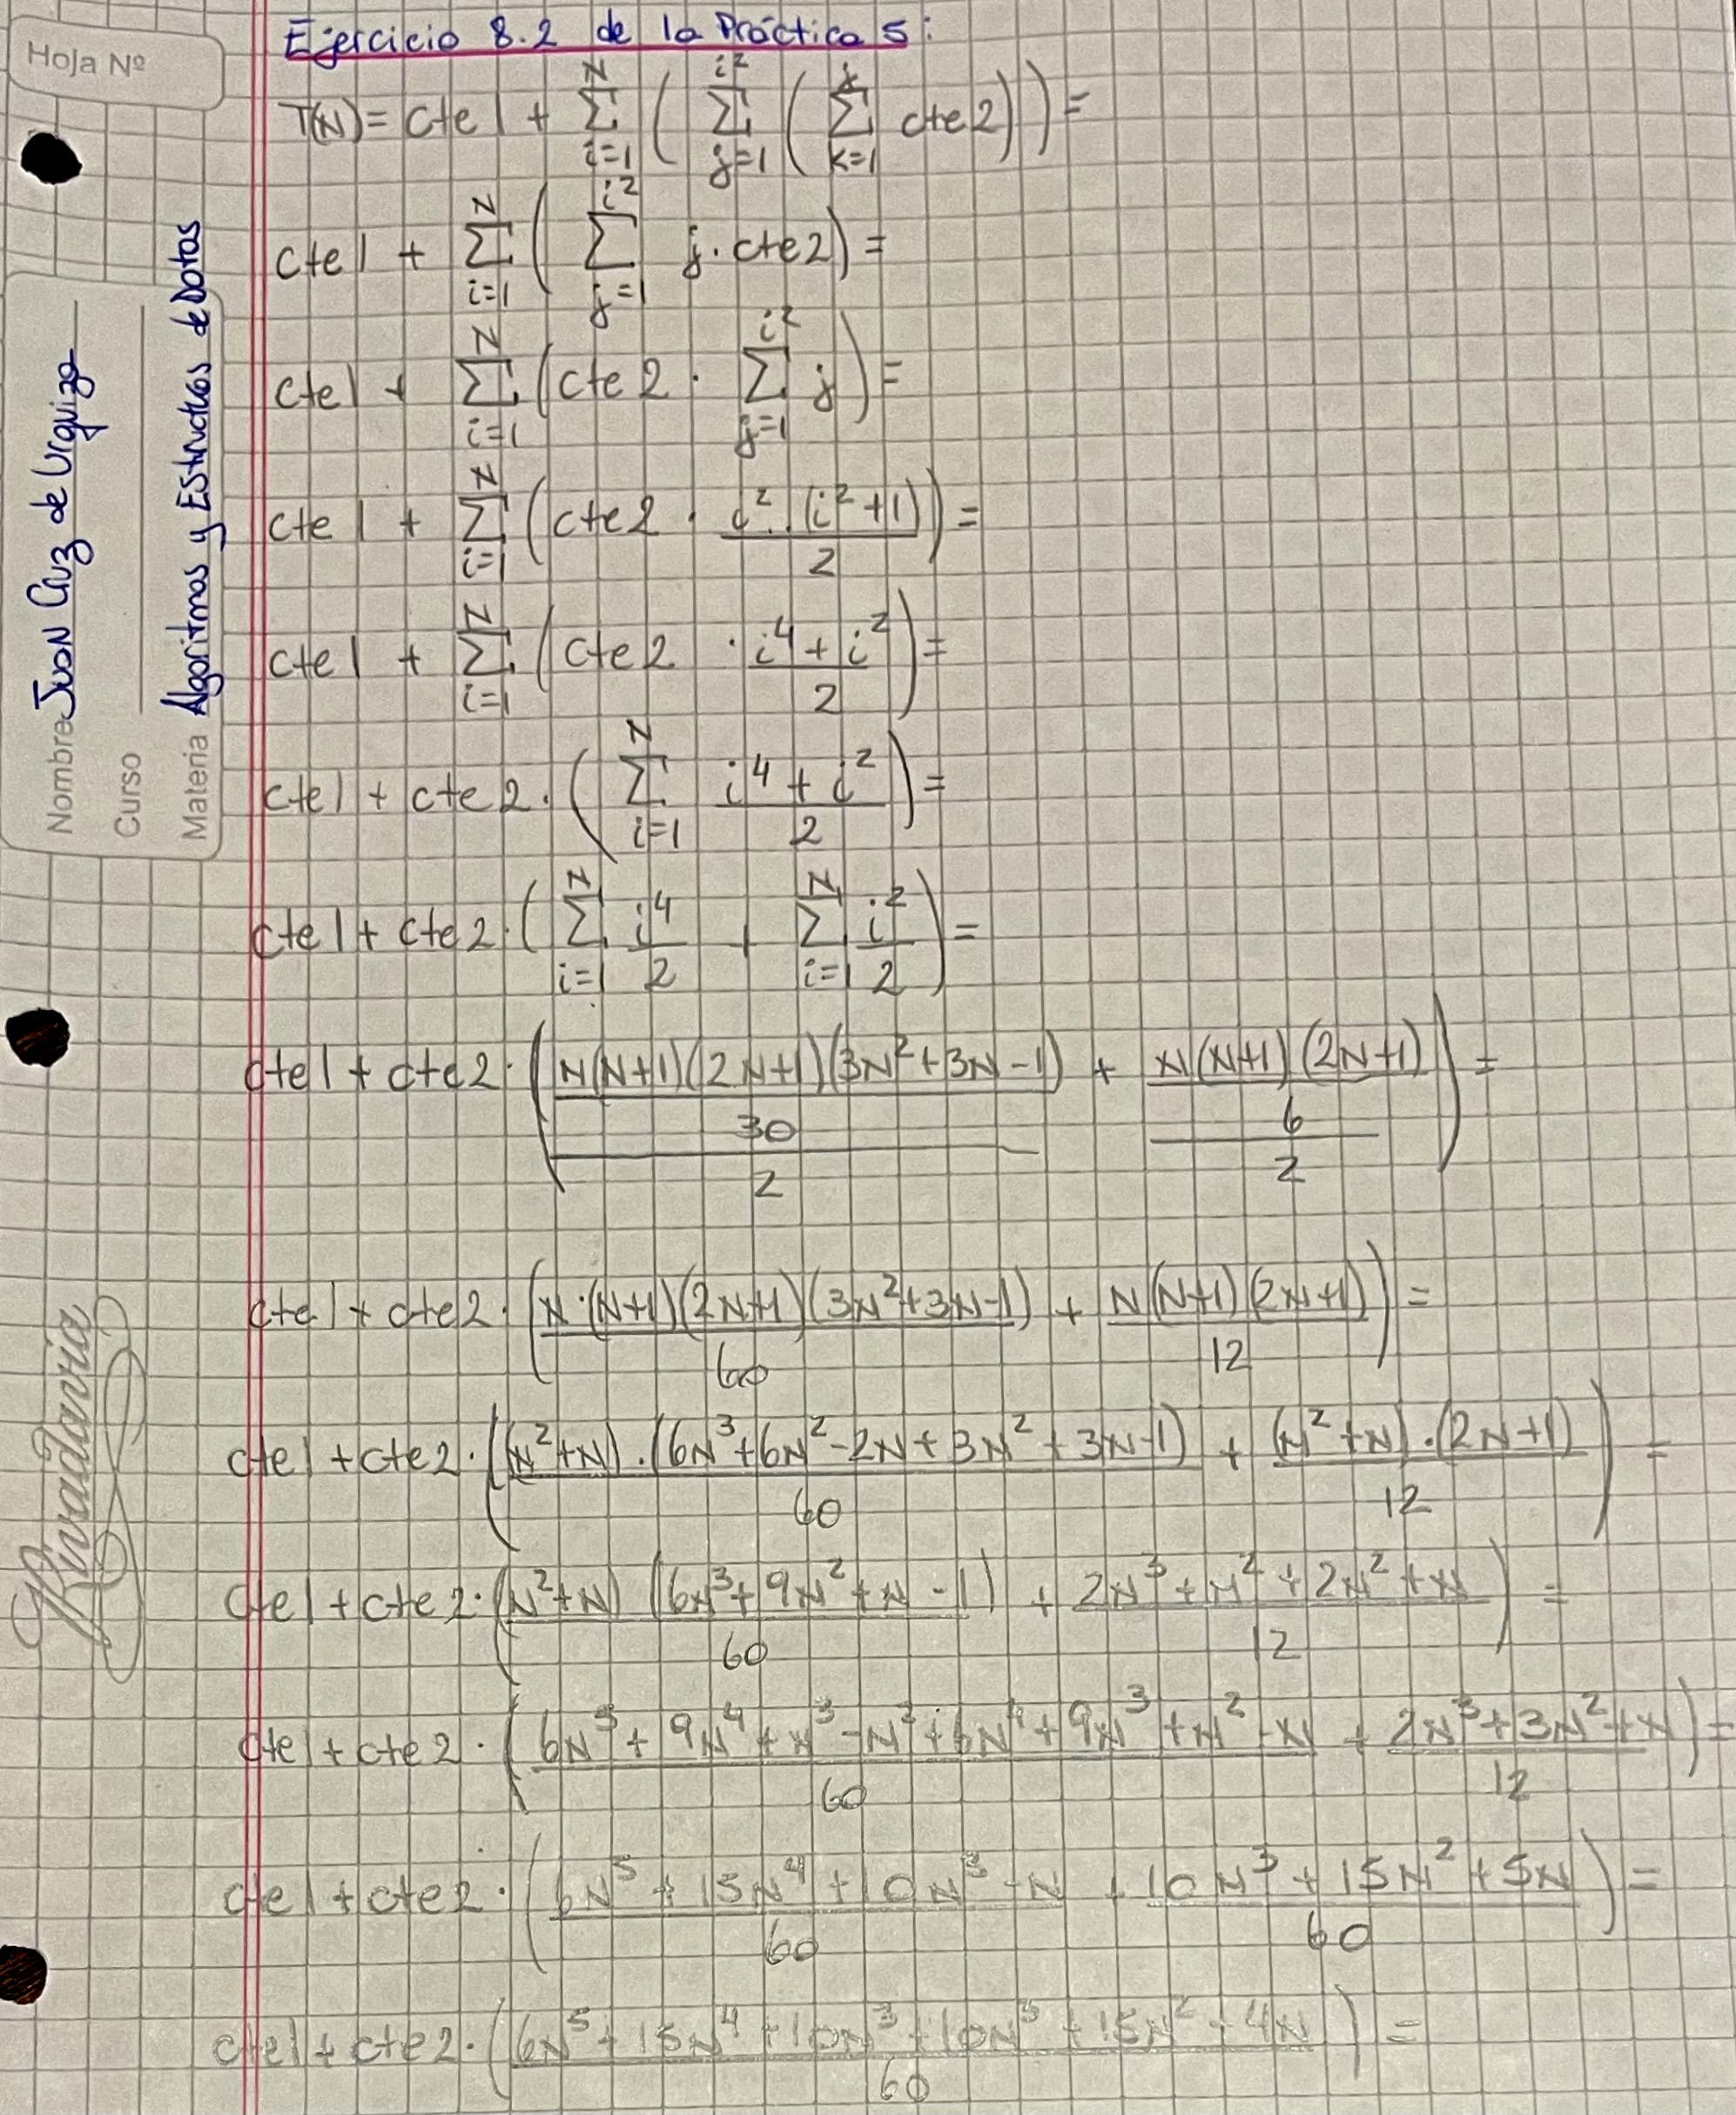 Hoja Nº
Nombre Juan Cruz de Urquiza
Curso
Materia Algoritmos y Estructuras de Datos
Rivadavia
Ejercicio 8.2 de la Práctica 5:
T(N) = cte1 + ∑_{i=1}^{N} (∑_{j=1}^{i²} (∑_{k=1}^{j} cte2)) =
cte1 + ∑_{i=1}^{N} (∑_{j=1}^{i²} j·cte2) =
cte1 + ∑_{i=1}^{N} (cte2 · ∑_{j=1}^{i²} j) =
cte1 + ∑_{i=1}^{N} (cte2 · (i²·(i²+1))/2) =
cte1 + ∑_{i=1}^{N} (cte2 · (i⁴+i²)/2) =
cte1 + cte2 · (∑_{i=1}^{N} (i⁴+i²)/2) =
cte1 + cte2 · (∑_{i=1}^{N} i⁴/2 + ∑_{i=1}^{N} i²/2) =
cte1 + cte2 · ((N(N+1)(2N+1)(3N²+3N-1)/30)/2 + (N(N+1)(2N+1)/6)/2) =
cte1 + cte2 · (N·(N+1)(2N+1)(3N²+3N-1)/60 + N(N+1)(2N+1)/12) =
cte1 + cte2 · ((N²+N)·(6N³+6N²-2N+3N²+3N-1)/60 + (N²+N)·(2N+1)/12) =
cte1 + cte2 · ((N²+N)(6N³+9N²+N-1)/60 + (2N³+N²+2N²+N)/12) =
cte1 + cte2 · ((6N⁵+9N⁴+N³-N²+6N⁴+9N³+N²-N)/60 + (2N³+3N²+N)/12) =
cte1 + cte2 · ((6N⁵+15N⁴+10N³-N)/60 + (10N³+15N²+5N)/60) =
cte1 + cte2 · ((6N⁵+15N⁴+10N³+10N³+15N²+4N)/60) =